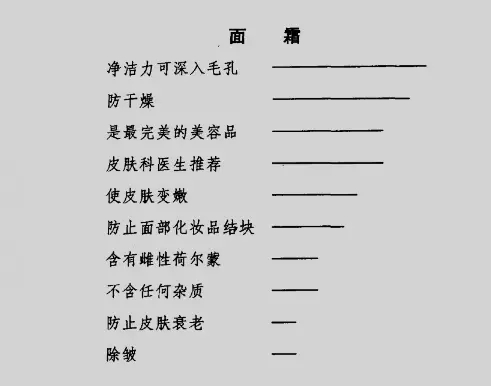 面 霜
净洁力可深入毛孔
防干燥
是最完美的美容品
皮肤科医生推荐
使皮肤变嫩
防止面部化妆品结块
含有雌性荷尔蒙
不含任何杂质
防止皮肤衰老
除皱